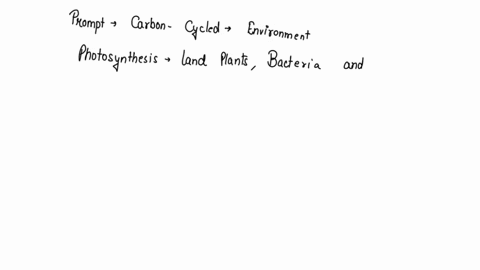 Prompt → Carbon- Cycled → Environment
Photosynthesis → Land Plants, Bacteria and